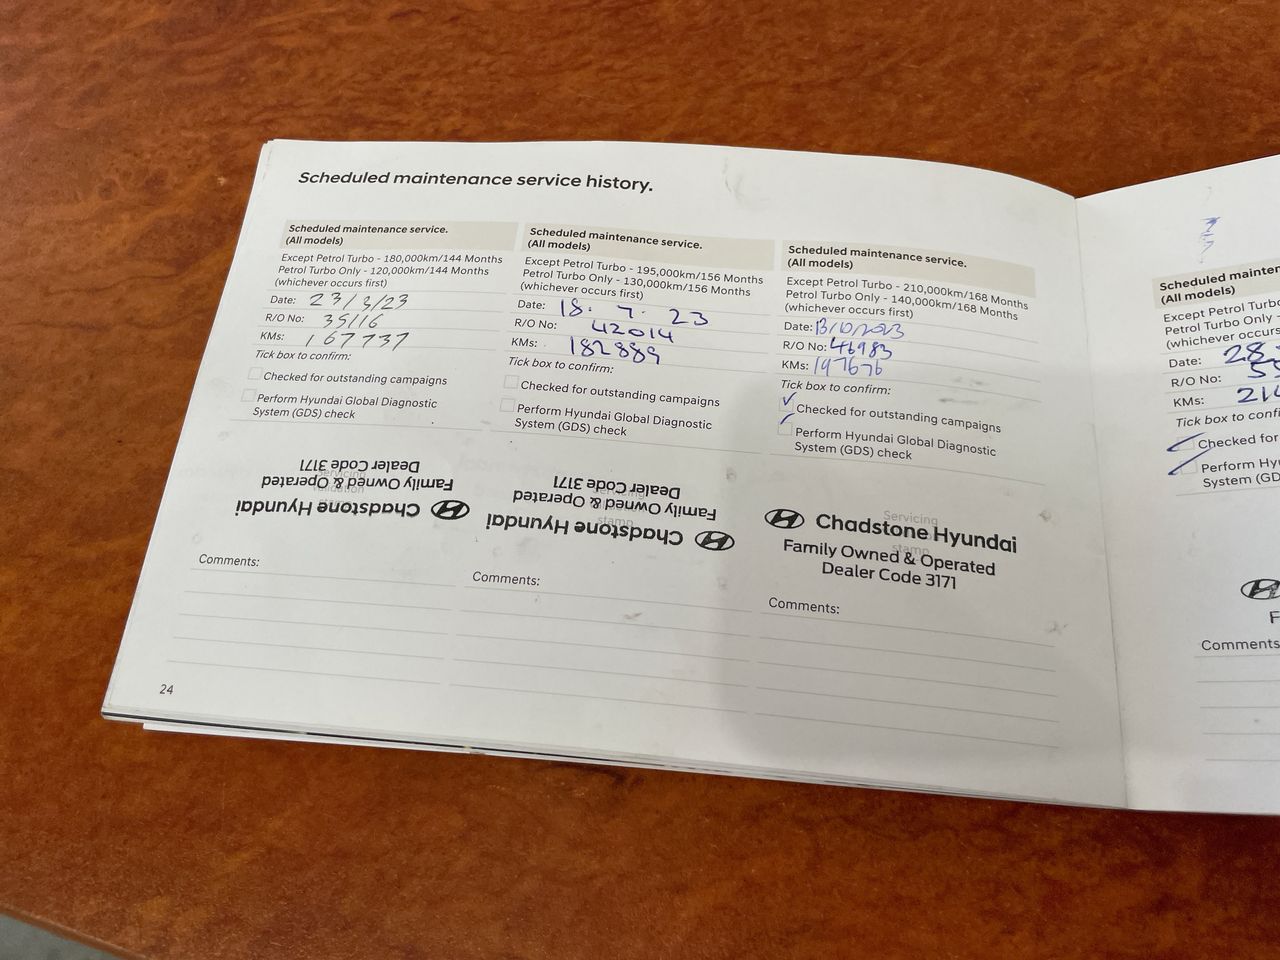 Scheduled maintenance service history.
Scheduled maintenance service.
(All models)
Except Petrol Turbo - 180,000km/144 Months
Petrol Turbo Only - 120,000km/144 Months
(whichever occurs first)
Date: 23/3/23
R/O No: 35116
KMs: 167737
Tick box to confirm:
Checked for outstanding campaigns
Perform Hyundai Global Diagnostic
System (GDS) check
Servicing
validation
stamp
Chadstone Hyundai
Family Owned & Operated
Dealer Code 3171
Comments:
24
Scheduled maintenance service.
(All models)
Except Petrol Turbo - 195,000km/156 Months
Petrol Turbo Only - 130,000km/156 Months
(whichever occurs first)
Date: 18. 7. 23
R/O No: 42014
KMs: 182889
Tick box to confirm:
Checked for outstanding campaigns
Perform Hyundai Global Diagnostic
System (GDS) check
Servicing
stamp
Chadstone Hyundai
Family Owned & Operated
Dealer Code 3171
Comments:
Scheduled maintenance service.
(All models)
Except Petrol Turbo - 210,000km/168 Months
Petrol Turbo Only - 140,000km/168 Months
(whichever occurs first)
Date: 13/10/2023
R/O No: 46983
KMs: 197676
Tick box to confirm:
Checked for outstanding campaigns
Perform Hyundai Global Diagnostic
System (GDS) check
Servicing
stamp
Chadstone Hyundai
Family Owned & Operated
Dealer Code 3171
Comments:
Scheduled mainten
(All models)
Except Petrol Turbo
Petrol Turbo Only -
(whichever occurs
Date: 28
R/O No: 
KMs: 21
Tick box to confi
Checked for
Perform Hy
System (GD
F
Comments